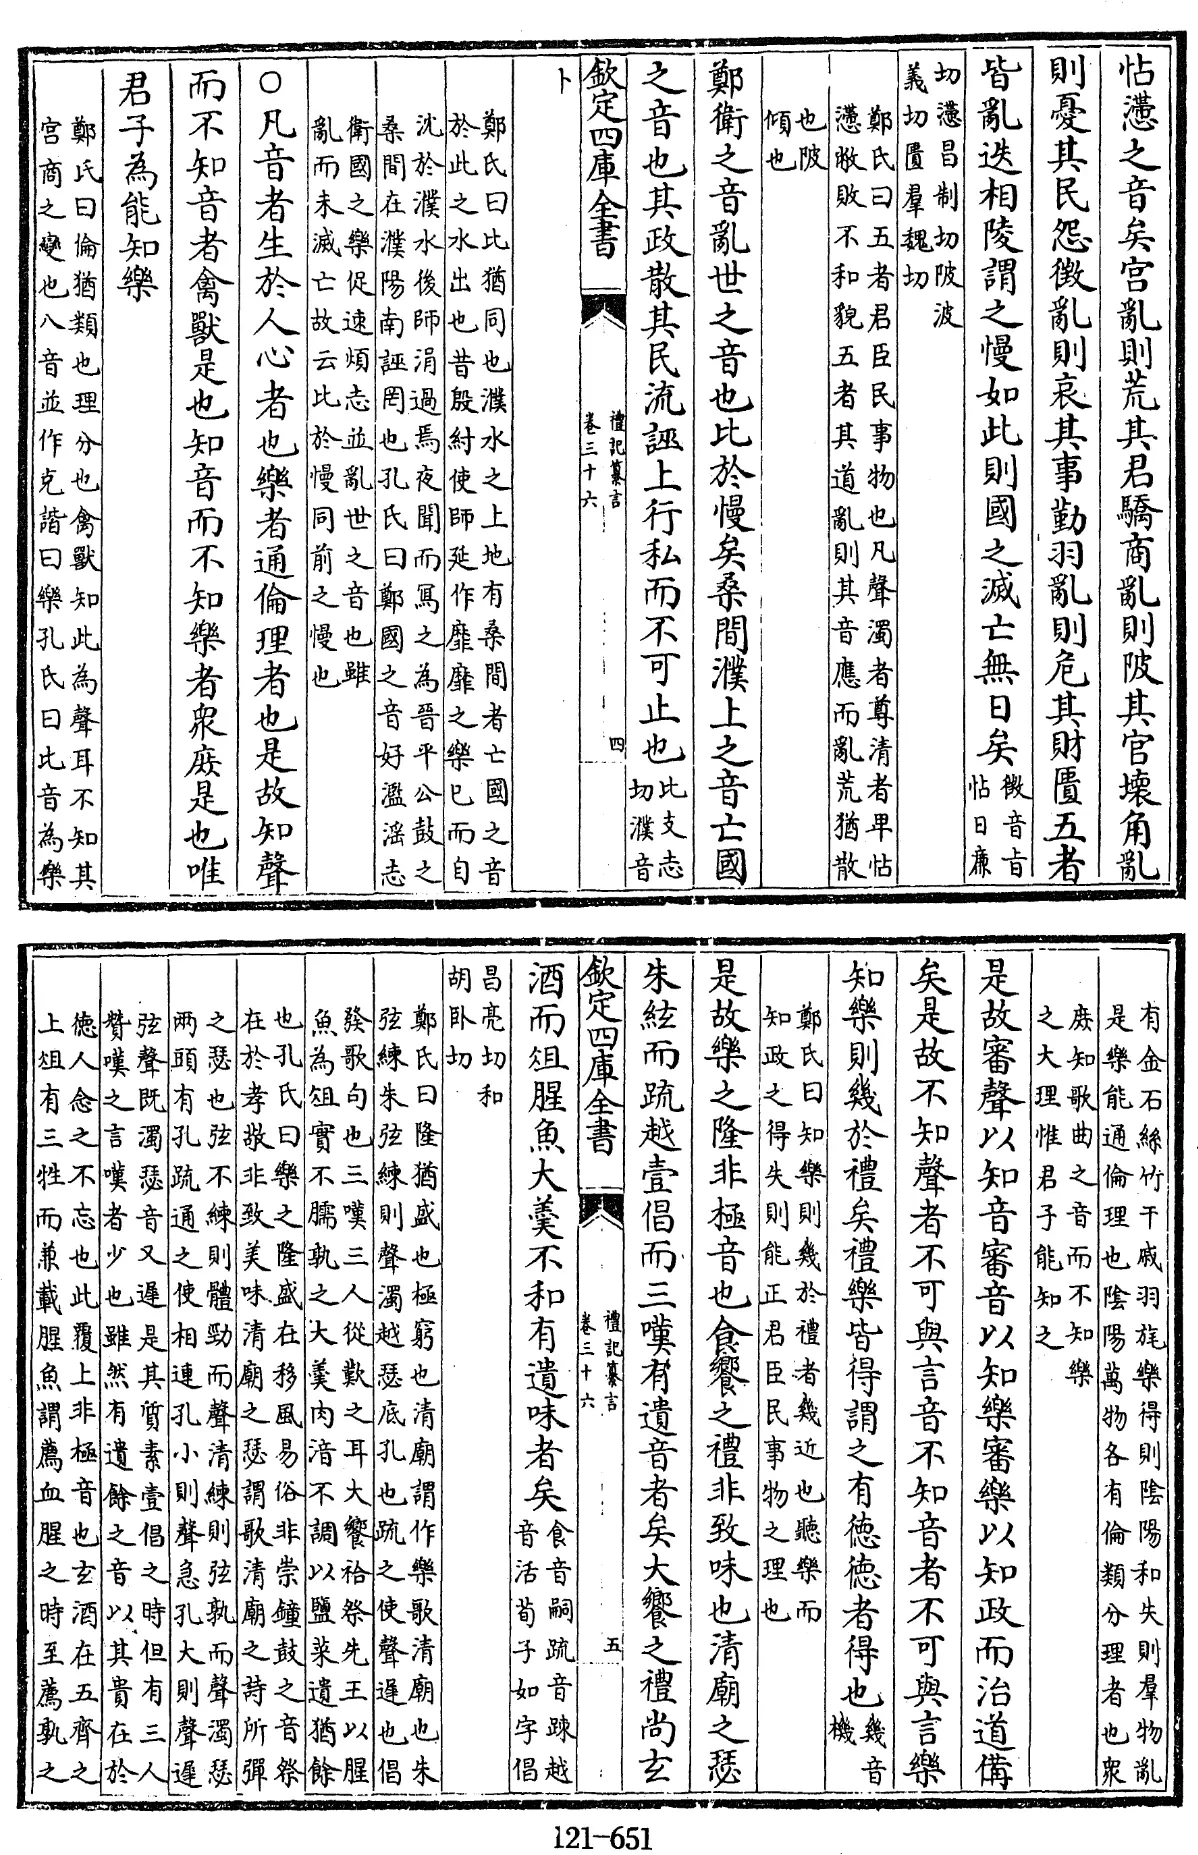 怗懘之音矣宫亂則荒其君驕商亂則陂其官壞角亂
則憂其民怨徵亂則哀其事勤羽亂則危其財匱五者
皆亂迭相陵謂之慢如此則國之滅亡無日矣徵音旨
怗日廉
切懘昌制切陂波
義切匱羣魏切
鄭氏曰五者君臣民事物也凡聲濁者尊清者卑怗
懘敝敗不和貌五者其道亂則其音應而亂荒猶散
也陂
傾也
鄭衛之音亂世之音也比於慢矣桑間濮上之音亡國
之音也其政散其民流誣上行私而不可止也比支志
切濮音
欽定四庫全書
禮記纂言
卷三十六
四
卜
鄭氏曰比猶同也濮水之上地有桑間者亡國之音
於此之水出也昔殷紂使師延作靡靡之樂已而自
沈於濮水後師涓過焉夜聞而寫之為晉平公鼓之
桑間在濮陽南誣罔也孔氏曰鄭國之音好濫滛志
衛國之樂促速煩志並亂世之音也雖
亂而未滅亡故云比於慢同前之慢也
○凡音者生於人心者也樂者通倫理者也是故知聲
而不知音者禽獸是也知音而不知樂者衆庻是也唯
君子為能知樂
鄭氏曰倫猶類也理分也禽獸知此為聲耳不知其
宫商之變也八音並作克諧曰樂孔氏曰比音為樂
有金石絲竹干戚羽旄樂得則陰陽和失則羣物亂
是樂能通倫理也陰陽萬物各有倫類分理者也衆
庻知歌曲之音而不知樂
之大理惟君子能知之
是故審聲以知音審音以知樂審樂以知政而治道備
矣是故不知聲者不可與言音不知音者不可與言樂
知樂則幾於禮矣禮樂皆得謂之有德德者得也幾音
機
鄭氏曰知樂則幾於禮者幾近也聽樂而
知政之得失則能正君臣民事物之理也
是故樂之隆非極音也食饗之禮非致味也清廟之瑟
朱絃而疏越壹倡而三嘆有遺音者矣大饗之禮尚玄
欽定四庫全書
禮記纂言
卷三十六
五
酒而俎腥魚大羮不和有遺味者矣食音嗣疏音踈越
音活荀子如字倡
昌亮切和
胡卧切
鄭氏曰隆猶盛也極窮也清廟謂作樂歌清廟也朱
弦練朱弦練則聲濁越瑟底孔也疏之使聲遲也倡
發歌句也三嘆三人從歎之耳大饗祫祭先王以腥
魚為俎實不臑孰之大羮肉湆不調以鹽菜遺猶餘
也孔氏曰樂之隆盛在移風易俗非崇鐘鼓之音祭
在於孝敬非致美味清廟之瑟謂歌清廟之詩所彈
之瑟也弦不練則體勁而聲清練則弦孰而聲濁瑟
兩頭有孔疏通之使相連孔小則聲急孔大則聲遲
弦聲既濁瑟音又遲是其質素壹倡之時但有三人
賛嘆之言嘆者少也雖然有遺餘之音以其貴在於
德人念之不忘也此覆上非極音也玄酒在五齊之
上俎有三牲而兼載腥魚謂薦血腥之時至薦孰之
121-651